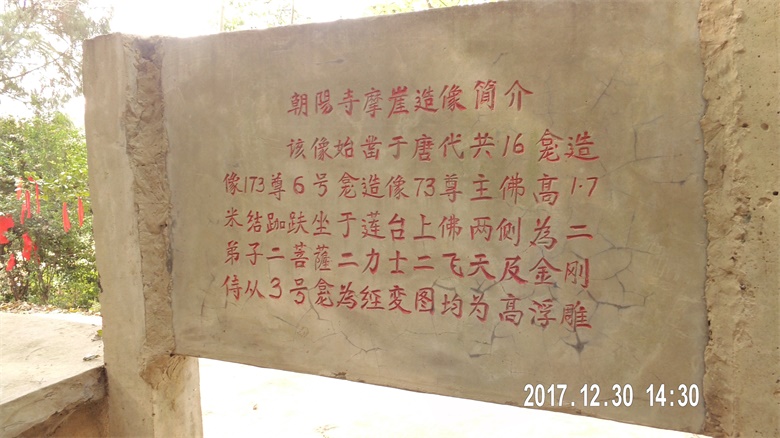 朝陽寺摩崖造像简介
该像始凿于唐代共16龛造
像173尊6号龛造像73尊主佛高1·7
米结跏趺坐于莲台上佛两侧為二
弟子二菩薩二力士二飞天及金刚
侍从3号龛為经变图均为高浮雕
2017.12.30 14:30